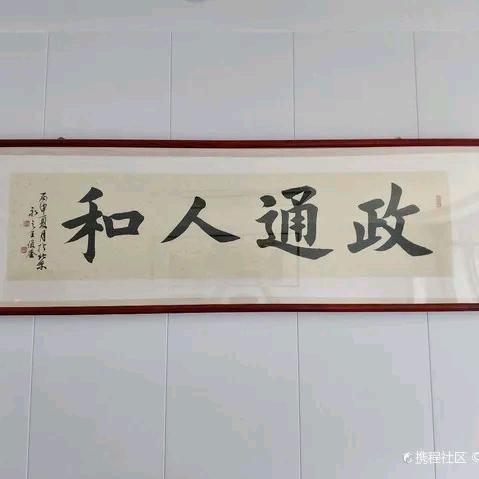 政通人和
丙申夏月於北京
携程社区